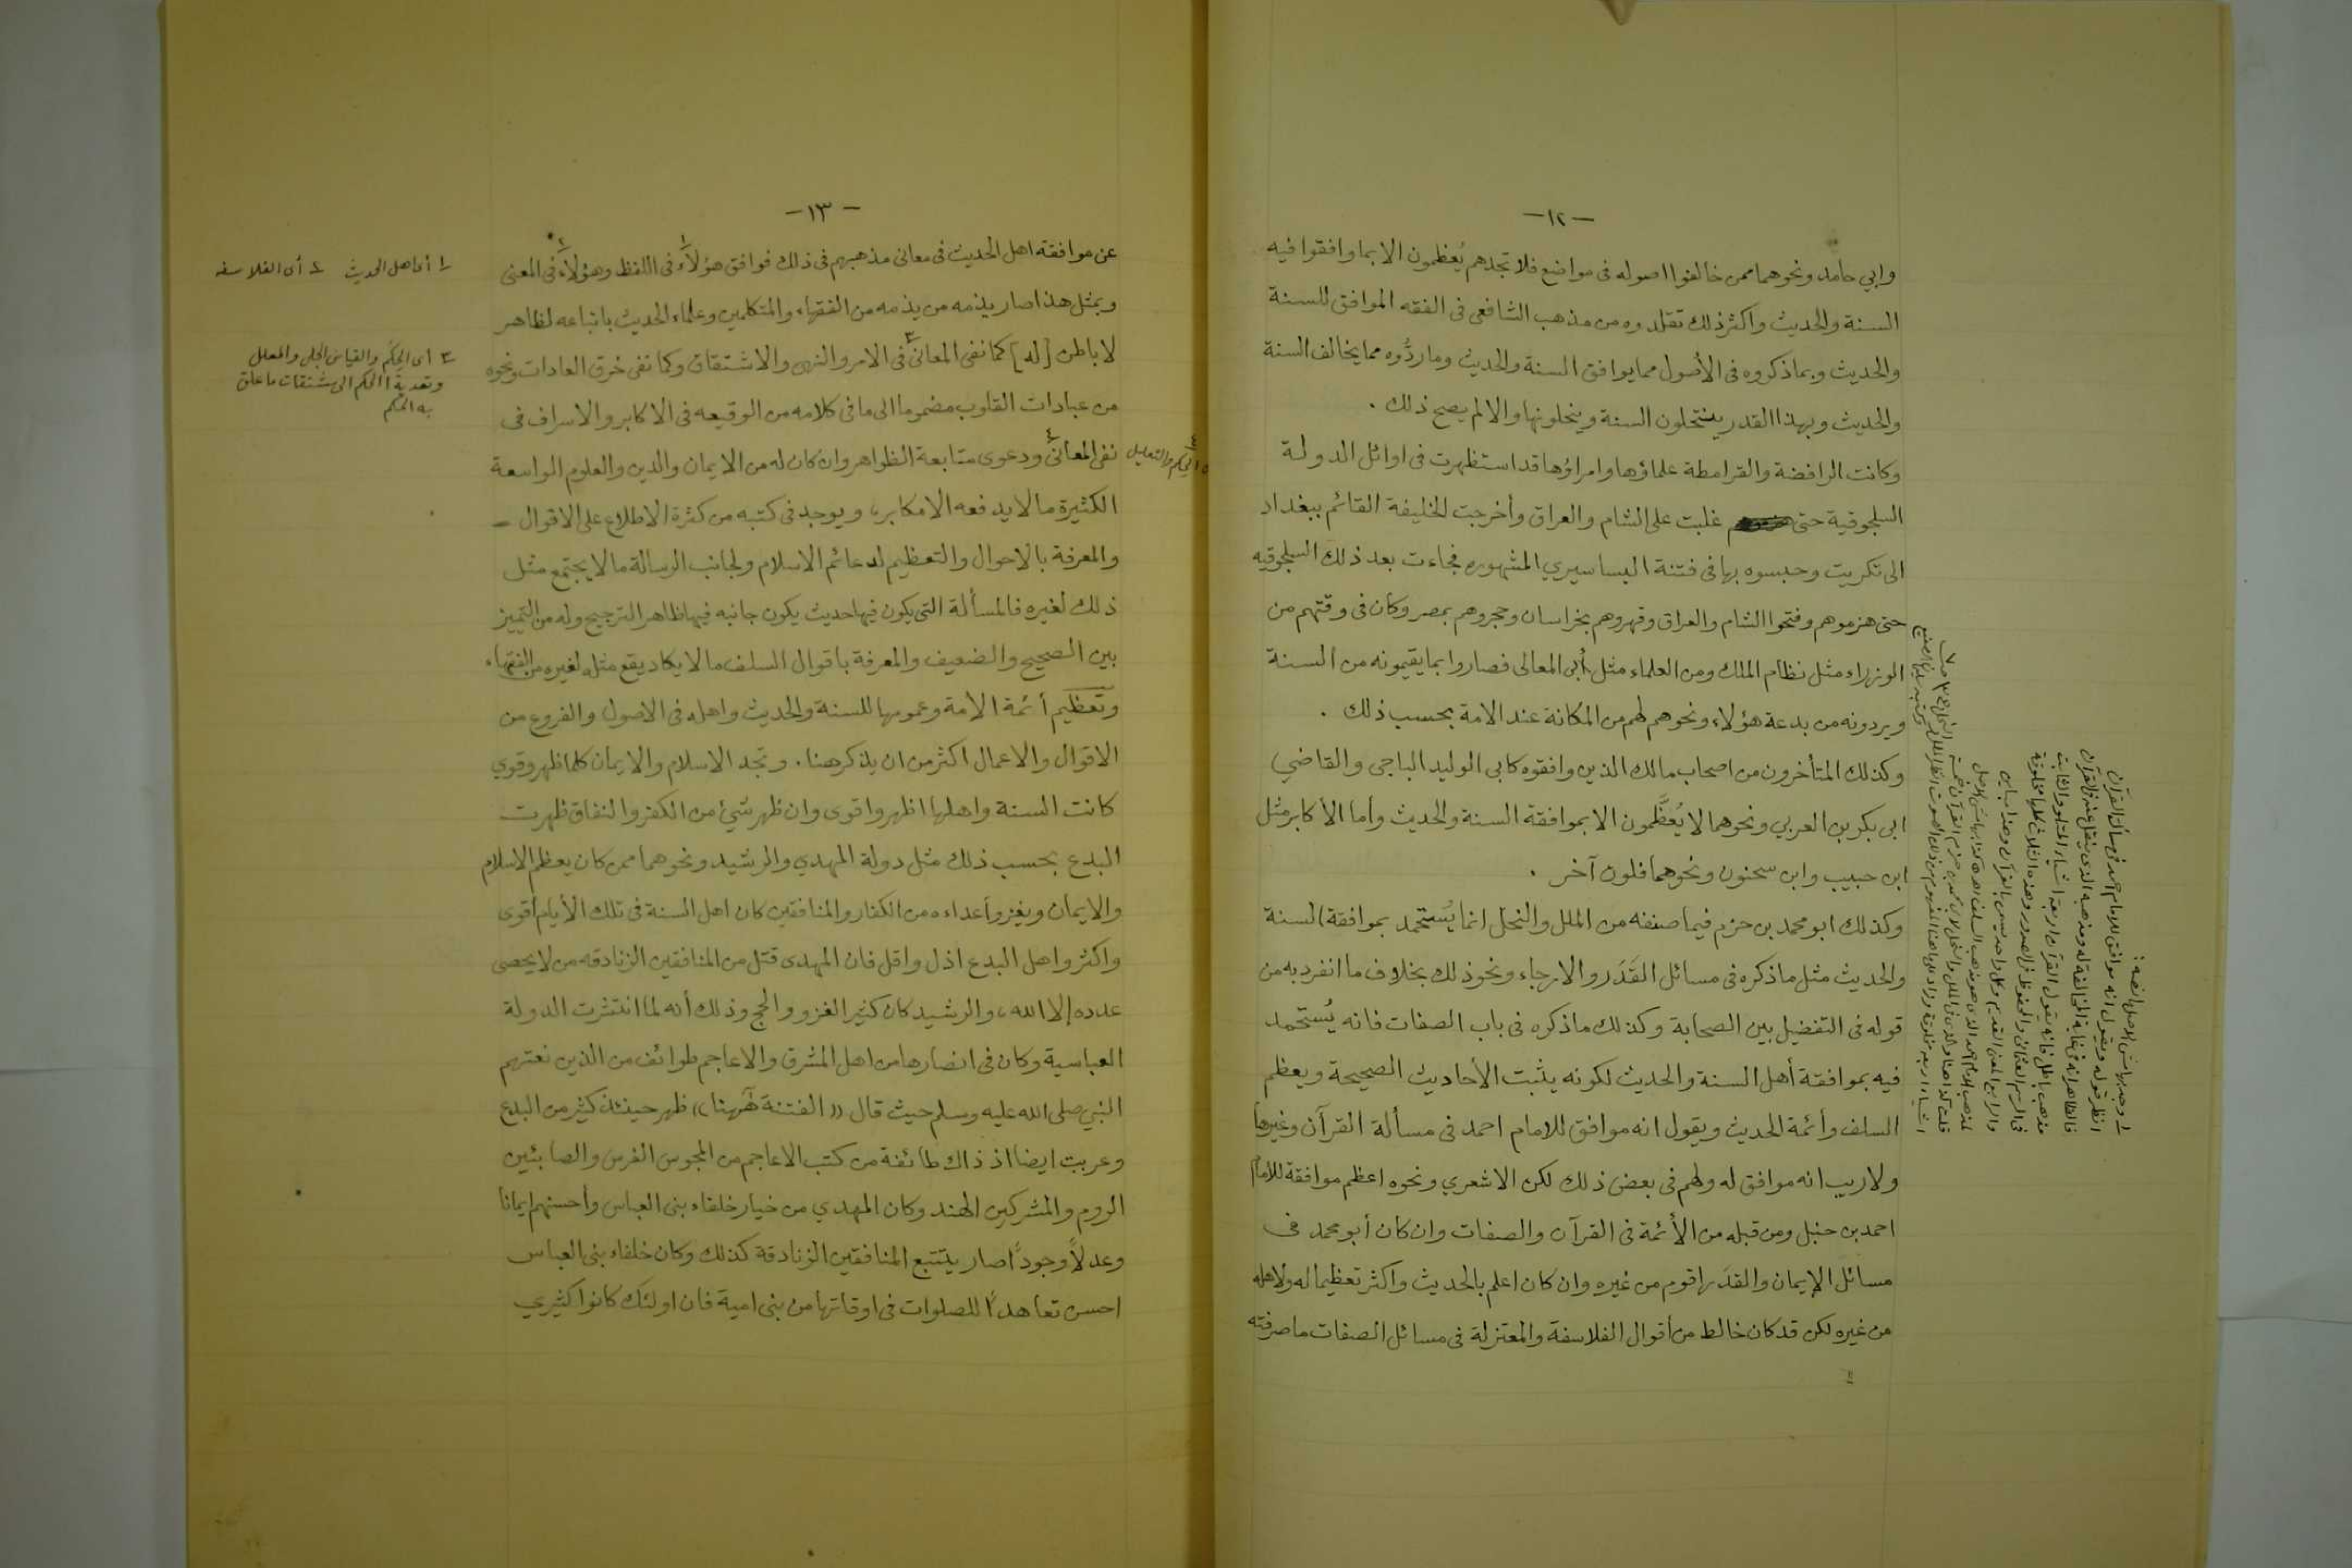 -١٢-
وابي حامد ونحوهما ممن خالفوا اصوله فى مواضع فلا تجدهم يُعظمون الا بما وافقوا فيه
السنة والحديث واكثر ذلك تقلدوه من مذهب الشافعى فى الفقه الموافق للسنة
والحديث وبما ذكروه فى الأصول مما يوافق السنة والحديث وما ردُّوه مما يخالف السنة
والحديث وبهذا القدر ينتحلون السنة وينحلونها والا لم يصح ذلك .
وكانت الرافضة والقرامطة علماؤها وامراؤها قد استظهرت فى اوائل الدولة
السلجوقية حتى غلبت على الشام والعراق وأخرجت الخليفة القائم ببغداد
الى تكريت وحبسوه بها فى فتنة البساسيري المشهوره فجاءت بعد ذلك السلجوقيه
حتى هزموهم وفتحوا الشام والعراق وقهروهم بخراسان وحجروهم بمصر وكان فى وقتهم من
الوزراء مثل نظام الملك ومن العلماء مثل أبى المعالى فصاروا بما يقيمونه من السنة
ويردونه من بدعة هؤلاء ونحوهم لهم من المكانة عند الامة بحسب ذلك .
وكذلك المتأخرون من اصحاب مالك الذين وافقوه كابى الوليد الباجى والقاضي
ابى بكر بن العربي ونحوهما لا يُعَظَّمون الا بموافقة السنة والحديث وأما الأكابر مثل
ابن حبيب وابن سحنون ونحوهما فلون آخر .
وكذلك ابو محمد بن حزم فيما صنفه من الملل والنحل انما يُستحمد بموافقة السنة
والحديث مثل ما ذكره فى مسائل القَدَر والارجاء ونحو ذلك بخلاف ما انفرد به من
قوله فى التفضيل بين الصحابة وكذلك ما ذكره فى باب الصفات فانه يُستحمد
فيه بموافقة أهل السنة والحديث لكونه يثبت الأحاديث الصحيحة ويعظم
السلف وأئمة الحديث ويقول انه موافق للامام احمد فى مسألة القرآن وغيرها
ولا ريب انه موافق له ولهم فى بعض ذلك لكن الاشعري ونحوه اعظم موافقة للامام
احمد بن حنبل ومن قبله من الأئمة فى القرآن والصفات وان كان أبو محمد فى
مسائل الإيمان والقدَر اقوم من غيره وان كان اعلم بالحديث واكثر تعظيما له ولاهله
من غيره لكن قد كان خالط من أقوال الفلاسفة والمعتزلة فى مسائل الصفات ما صرفته
١ وجد بهامش الاصل ما نصه :
انظر قوله ويقول انه موافق للامام احمد فى مسألة القرآن
-١٣-
عن موافقة اهل الحديث فى معانى مذهبهم فى ذلك فوافق هؤلاء١ فى اللفظ وهؤلاء٢ فى المعنى
وبمثل هذا صار يذمه من يذمه من الفقهاء والمتكلمين وعلماء الحديث باتباعه لظاهر
لا باطن [له] كما نفى المعانى٣ فى الامر والنهى والاشتقاق وكما نفى خرق العادات ونحوه
من عبادات القلوب مضموما الى ما فى كلامه من الوقيعه فى الاكابر والاسراف فى
نفى المعانى٤ ودعوى متابعة الظواهر وان كان له من الايمان والدين والعلوم الواسعة
الكثيرة ما لا يدفعه الا مكابر، ويوجد فى كتبه من كثرة الاطلاع على الاقوال
والمعرفة بالاحوال والتعظيم لدعائم الاسلام ولجانب الرسالة ما لا يجتمع مثل
ذلك لغيره فالمسألة التى يكون فيها حديث يكون جانبه فيها ظاهر الترجيح وله من التمييز
بين الصحيح والضعيف والمعرفة باقوال السلف ما لا يكاد يقع مثله لغيره من الفقهاء.
وتعظيم أئمة الامة وعمومها للسنة والحديث واهله فى الاصول والفروع من
الاقوال والاعمال اكثر من ان يذكر هنا . وتجد الاسلام والايمان كلما ظهر وقوي
كانت السنة واهلها اظهر واقوى وان ظهر شيئ من الكفر والنفاق ظهرت
البدع بحسب ذلك مثل دولة المهدي والرشيد ونحوهما ممن كان يعظم الاسلام
والايمان ويغزو أعداءه من الكفار والمنافقين كان اهل السنة فى تلك الأيام أقوى
واكثر واهل البدع اذل واقل فان المهدى قتل من المنافقين الزنادقه من لا يحصى
عدده إلا الله، والرشيد كان كثير الغزو والحج وذلك أنه لما انتشرت الدولة
العباسية وكان فى انصارها من اهل المشرق والاعاجم طوائف من الذين نعتهم
النبي صلى الله عليه وسلم حيث قال ((الفتنة هٰهنا)) ظهر حينئذ كثير من البدع
وعربت ايضا اذ ذاك طائفة من كتب الاعاجم من المجوس الفرس والصابئين
الروم والمشركين الهند وكان المهدي من خيار خلفاء بنى العباس وأحسنهم ايمانا
وعدلاً وجوداً صار يتتبع المنافقين الزنادقة كذلك وكان خلفاء بنى العباس
احسن تعاهداً للصلوات فى اوقاتها من بنى امية فان اولئك كانوا كثيري
١ أى اهل الحديث ٢ أى الفلاسفه
٣ أى الحِكَم والقياس الجلى والمعلل
وتعدية الحكم الى مشتقات ما علق
به الحكم
٤ الحِكَم والتعليل